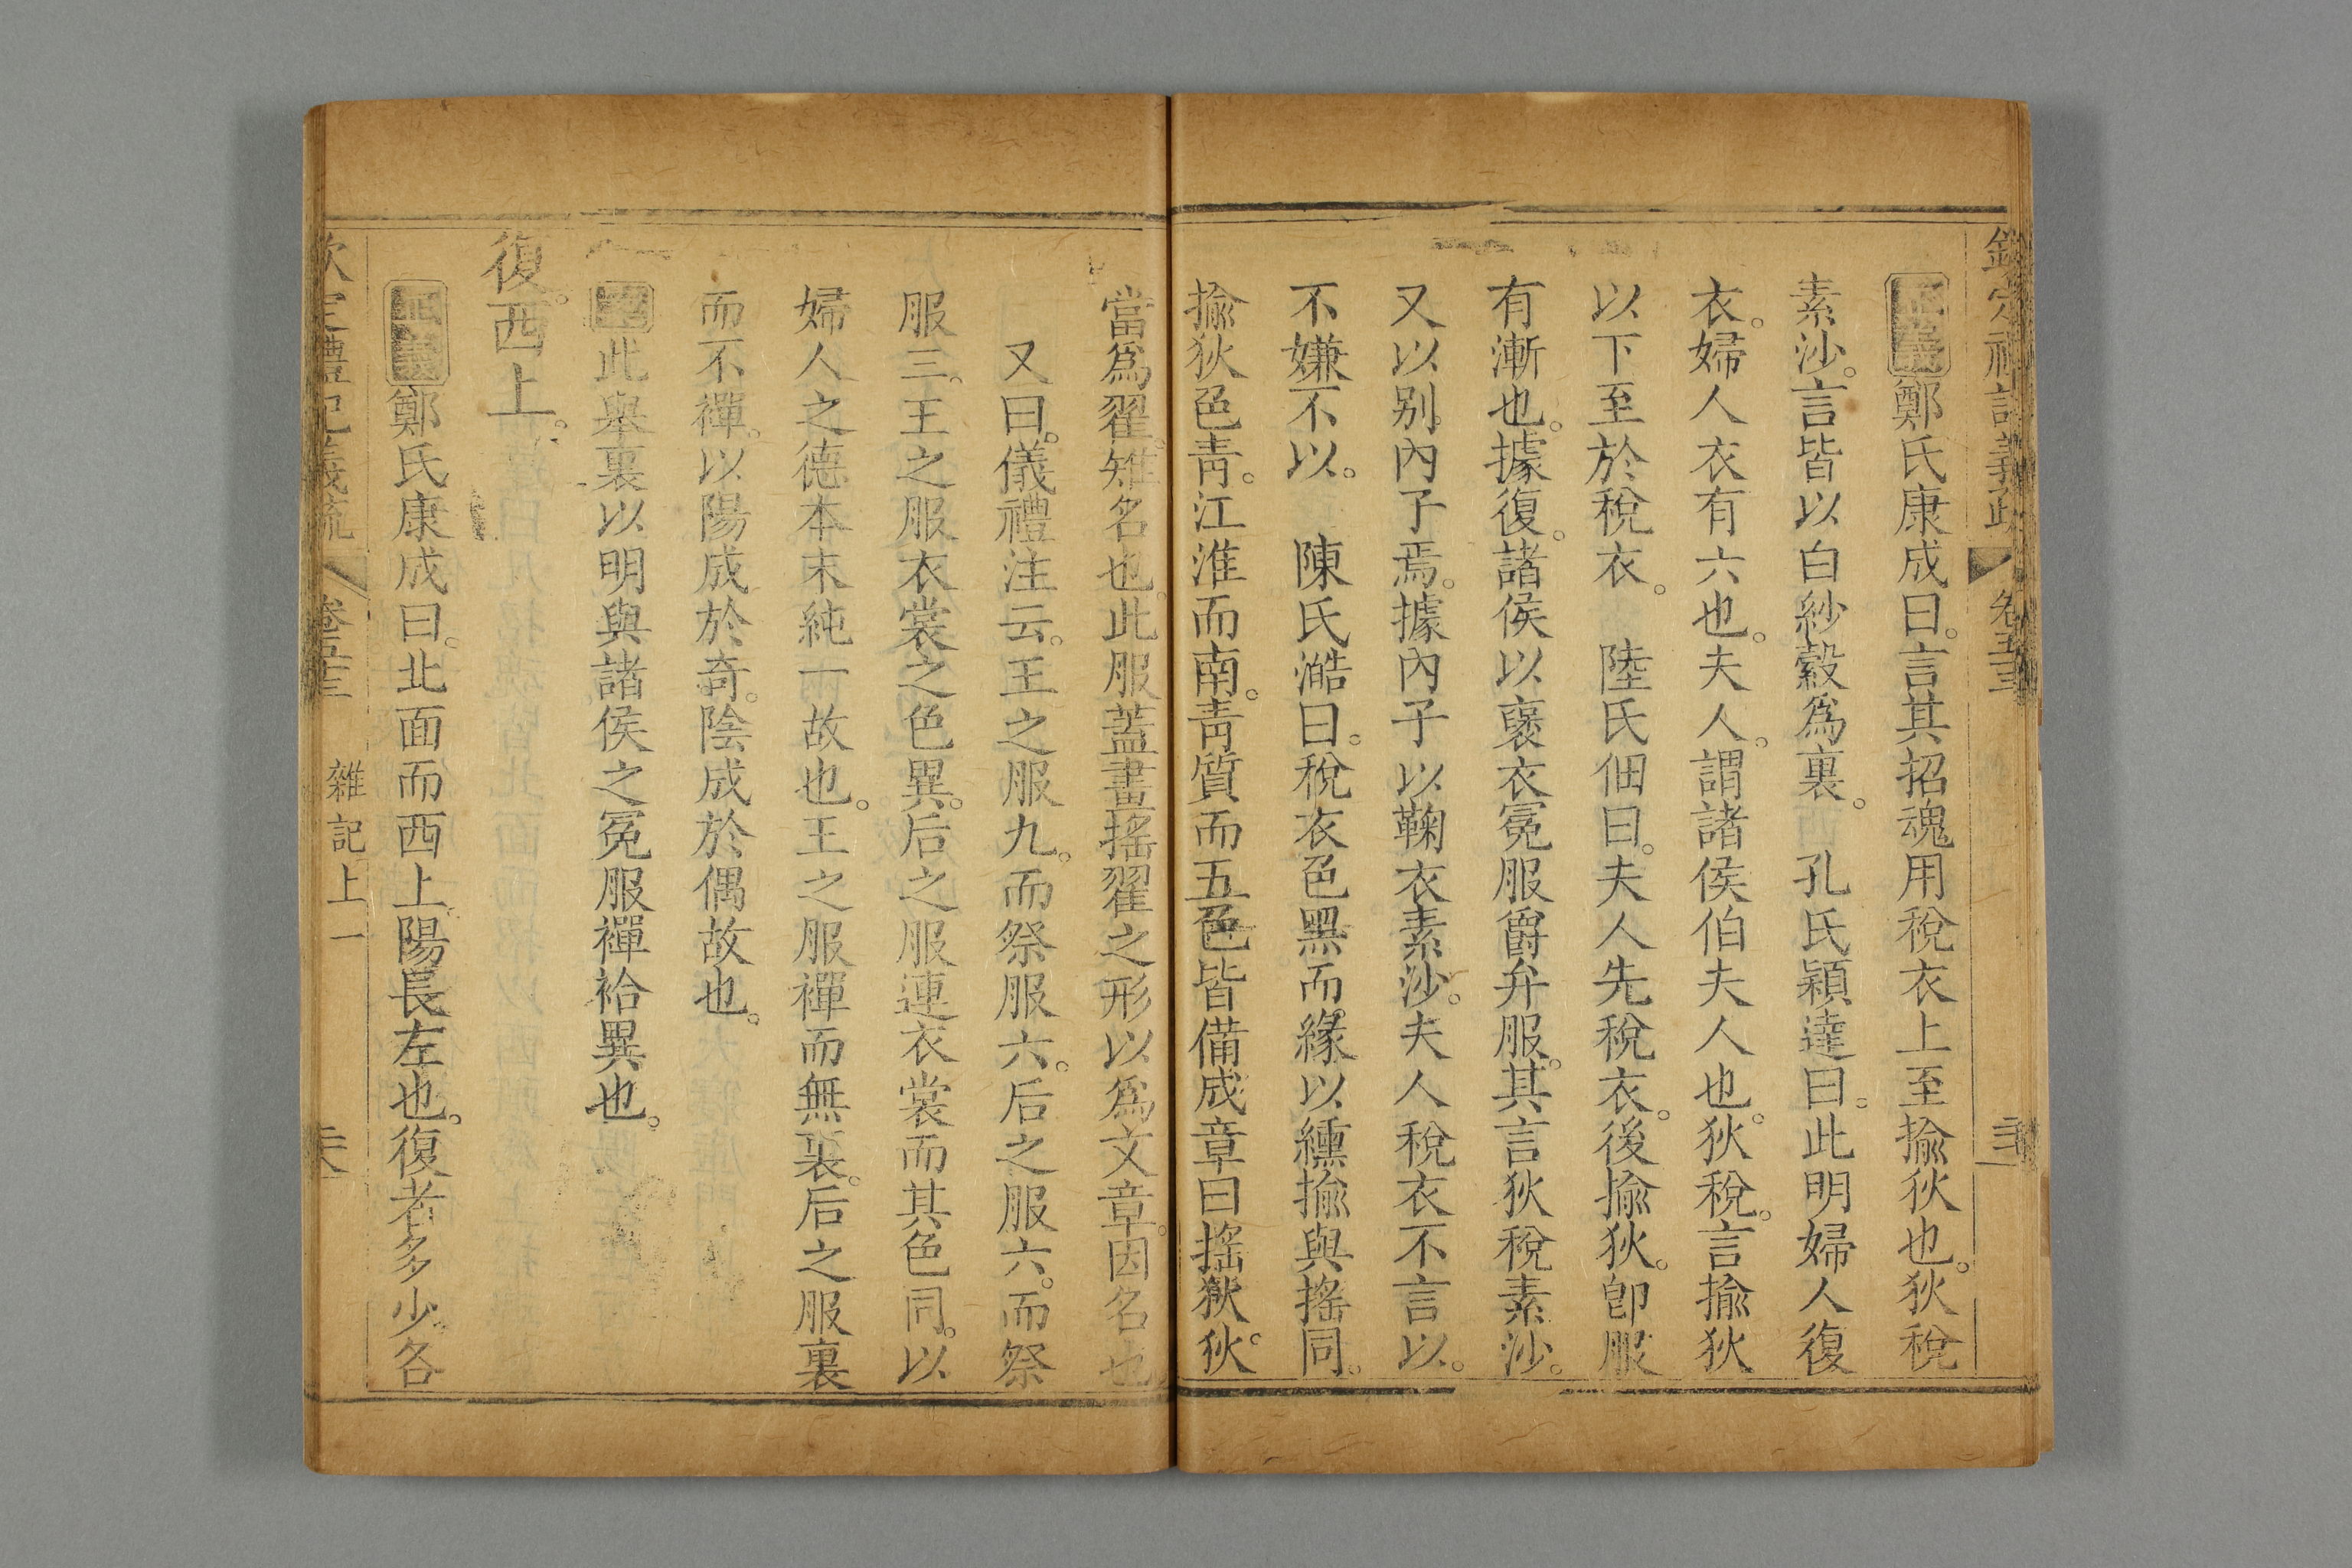 正義鄭氏康成曰。言其招魂用稅衣上至揄狄也。狄稅
素沙。言皆以白紗縠爲裏。 孔氏穎達曰。此明婦人復
衣。婦人衣有六也。夫人。謂諸侯伯夫人也。狄稅。言揄狄
以下至於稅衣。 陸氏佃曰。夫人先稅衣。後揄狄。卽服
有漸也。據復。諸侯以褒衣冕服爵弁服。其言狄稅素沙。
又以别內子焉。據內子以鞠衣素沙。夫人稅衣不言以。
不嫌不以。 陳氏澔曰。稅衣色黑而緣以纁揄與搖同。
揄狄色青。江淮而南。青質而五色皆備成章曰搖狄狄。
當爲翟。雉名也。此服蓋畫搖翟之形以爲文章。因名也
又曰。儀禮注云。王之服九。而祭服六。后之服六。而祭
服三。王之服衣裳之色異。后之服連衣裳而其色同。以
婦人之德本末純一故也。王之服襌而無裏。后之服裏
而不襌。以陽成於奇。陰成於偶故也。
此舉裏以明與諸侯之冕服襌袷異也。
復。西上。
正義鄭氏康成曰。北面而西上陽長左也。復者多少各
欽定禮記義疏 卷五十三 雜記上一